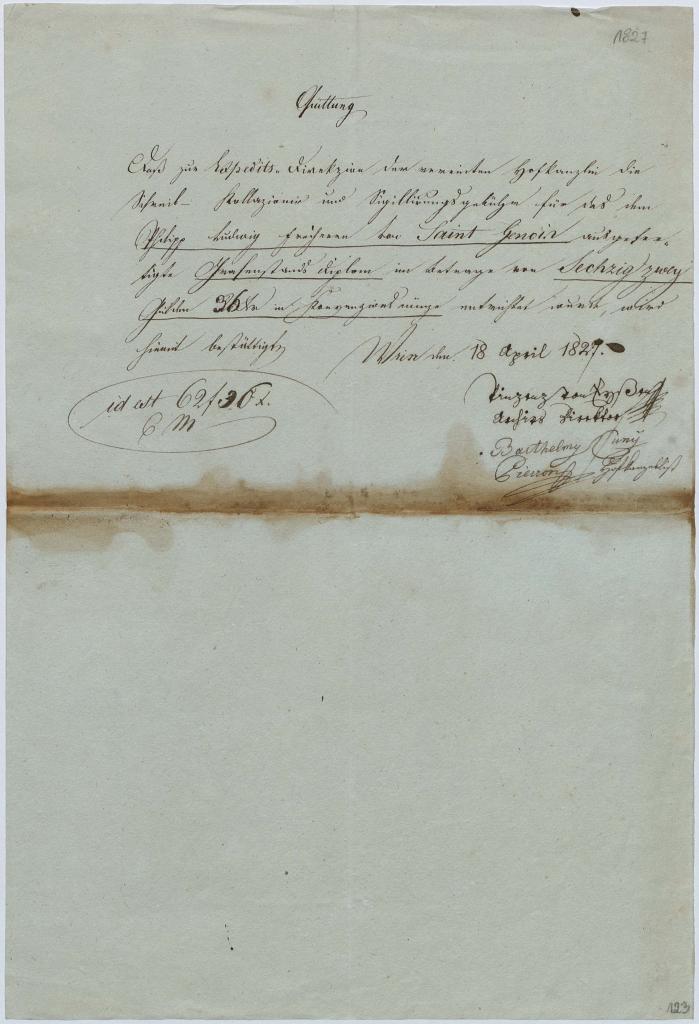 1827
Quittung
Daß zur Expedits-Direkzion der vereinten Hofkanzlei die
Schreib- Kollazionir und Sigillirungsgebühr für das dem
Philipp Ludwig Freiherrn von Saint Genois ausgefer-
tigte Grafenstands Diplom im Betrage von Sechzig zwey
Gulden 36 Xr in Konvenzionsmünze entrichtet wurde, wird
hiemit bestättigt
Wien den 18 April 1827.
id est 62 f 36 x.
C M
Vinzenz von
Archivs Direktor
Barthelmy
Hofkanzelist
123